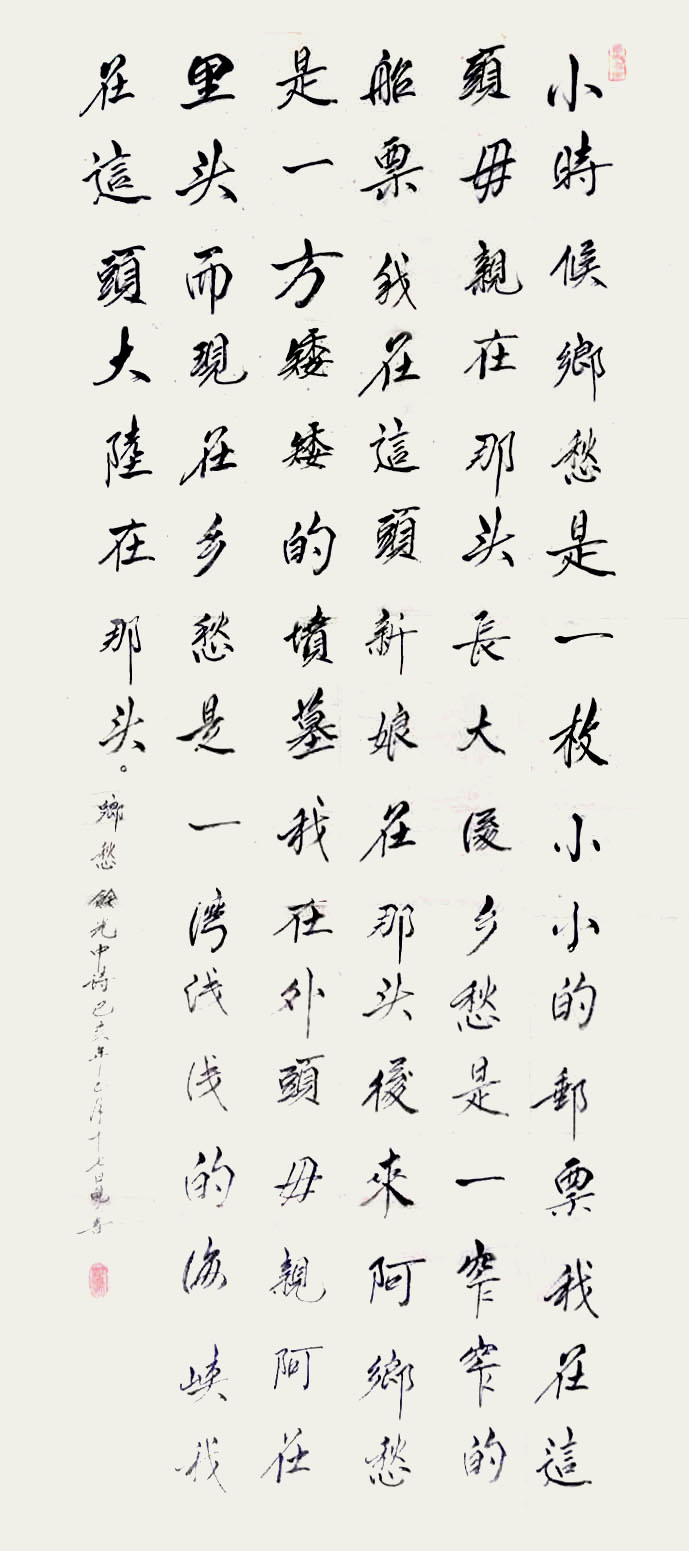 小時候鄉愁是一枚小小的郵票我在這
頭母親在那头長大後乡愁是一窄窄的
船票我在這頭新娘在那头後來阿鄉愁
是一方矮矮的墳墓我在外頭母親阿在
里头而現在乡愁是一湾浅浅的海峡我
在這頭大陸在那头。
鄉愁餘光中詩己亥年七月十七日